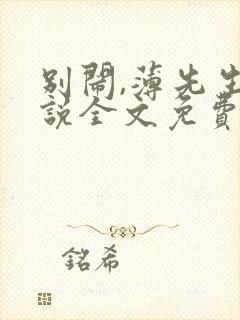 別鬧,薄先生
說全文免費
銘希